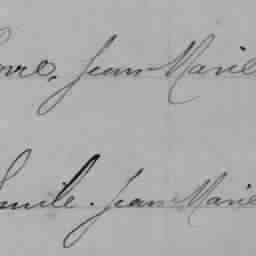 Jean-Marie
Emile. Jean Marie